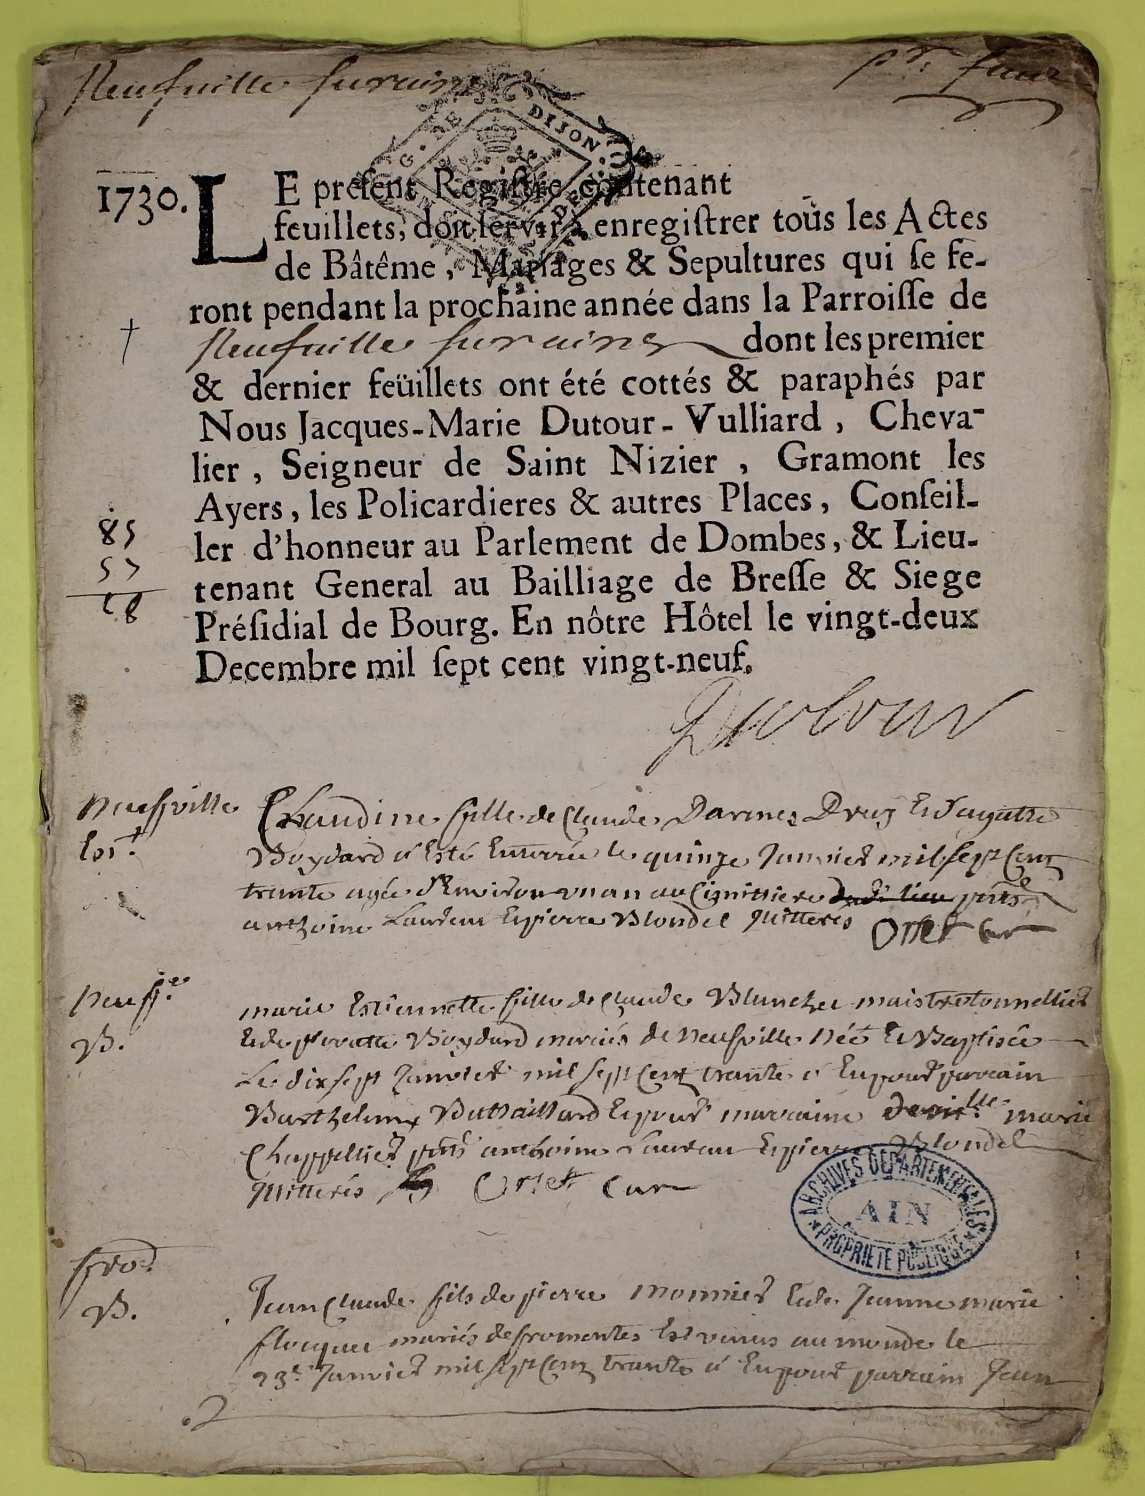 Neufuille sur ains
pr. faux
G. DE DIJON
1730.
LE present Registre contenant
feuillets, doit servir à enregistrer toûs les Actes
de Bâtême, Mariages & Sepultures qui se fe-
ront pendant la prochaine année dans la Parroisse de
Neufuille sur ains dont les premier
& dernier feüillets ont été cottés & paraphés par
Nous Jacques-Marie Dutour-Vulliard, Cheva-
lier, Seigneur de Saint Nizier, Gramont les
Ayers, les Policardieres & autres Places, Conseil-
ler d'honneur au Parlement de Dombes, & Lieu-
tenant General au Bailliage de Bresse & Siege
Présidial de Bourg. En nôtre Hôtel le vingt-deux
Decembre mil sept cent vingt-neuf.
85
57
28
Dutour
neufville
Claudine fille de Claude Darmes et
Boydard a Esté Enterrée le quinze Janvier mil sept Cent
trante agée d'Environ un an au Cimittiere dud. lieu pnts
anthoine Laureau Et pierre Blondel Mitteres Cur
neufve
B.
marie Estiennette fille de Claude Blanchet maistre tonnellier
Et de pierrette Boydard mariés de neufville Née Et Baptisée
Le dix sept Janvier mil sept Cent trante a Eu pour parrain
Barthelemy Et pour marraine Demlle marie
Chappellier pnts anthoine Laureau Et pierre Blondel
Mitterés Cur
ARCHIVES DEPARTEMENTALES
AIN
PROPRIETE PUBLIQUE
fro.
B.
Jean Claude fils de pierre monnier Et de Jeanne marie
mariés de fromentes Est venus au monde le
23e Janvier mil sept Cent trante a Eu pour parrain Jean